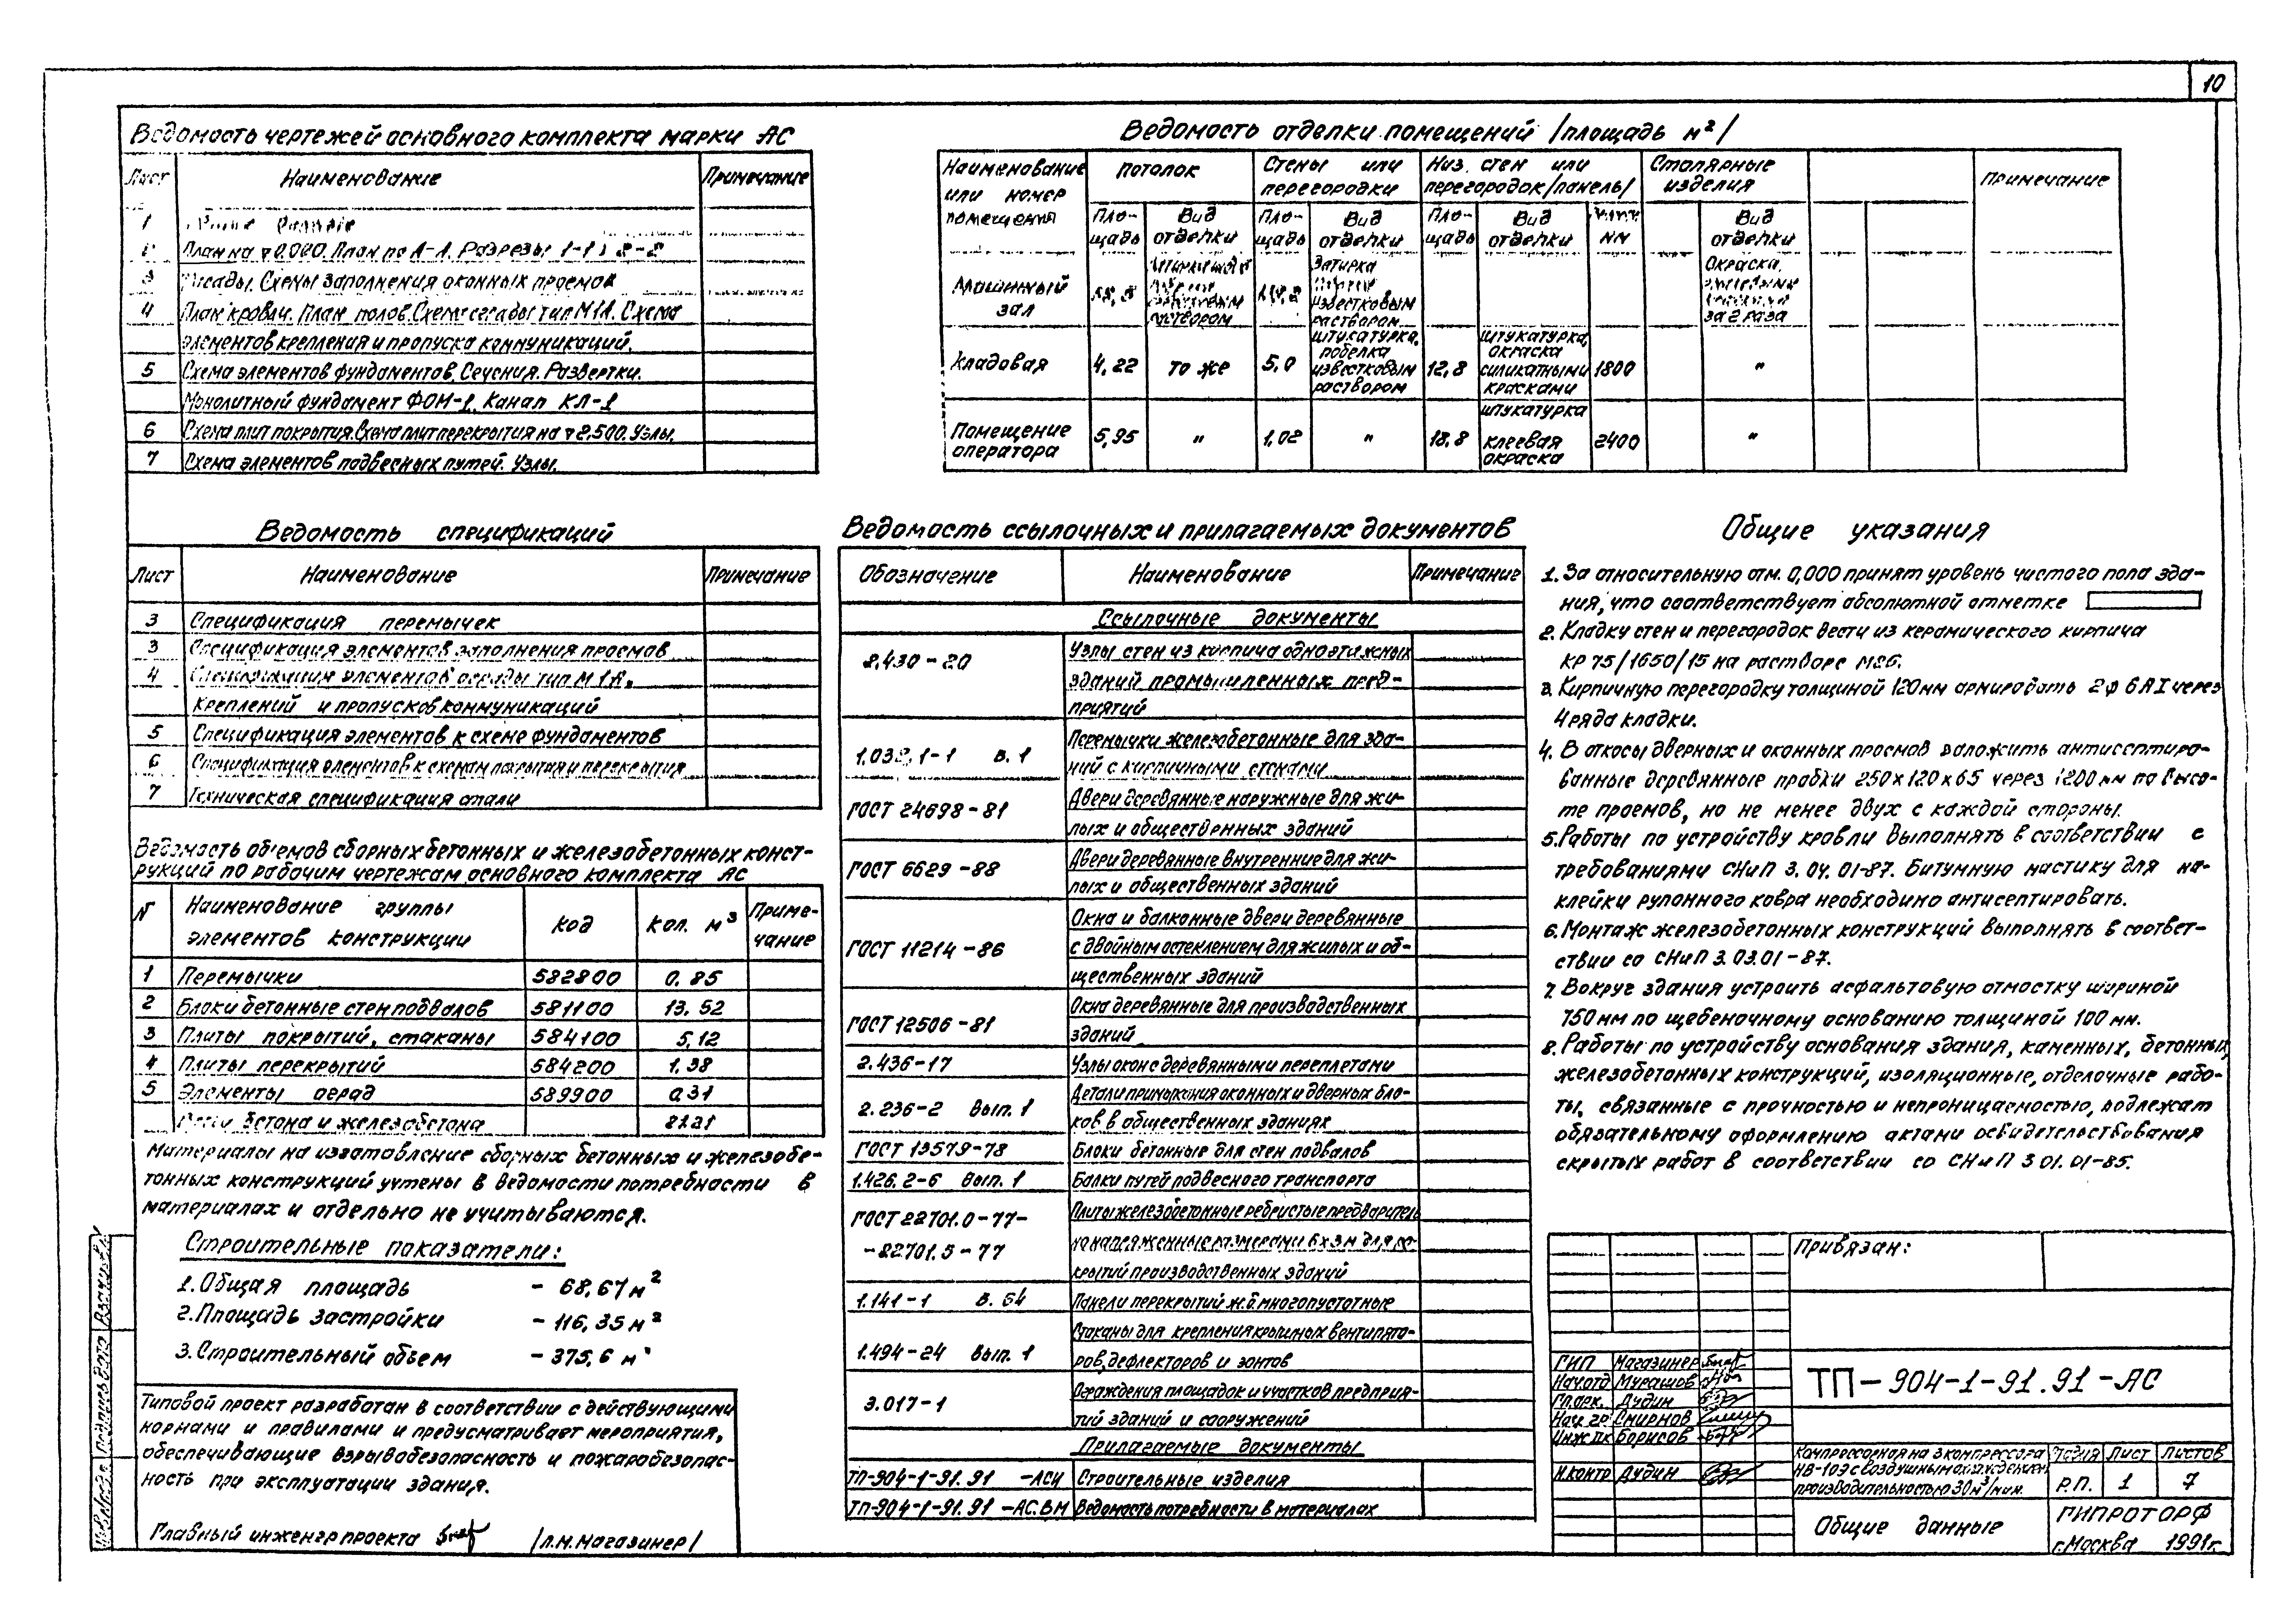 10
Ведомость чертежей основного комплекта марки АС
Лист Наименование Примечание
1
2 План на 0.000. План по А-А. Разрезы 1-1; 2-2
3 Фасады. Схемы заполнения оконных проемов
4 План кровли. План полов. Схема Схема
элементов крепления и пропуска коммуникаций.
5 Схема элементов фундаментов. Сечения. Развертки.
Монолитный фундамент ФОМ-1. Канал КЛ-1
6 Схема плит покрытия. Схема плит перекрытия на 2.500. Узлы.
7 Схема элементов подвесных путей. Узлы.
Ведомость отделки помещений /площадь м²/
Наименование или номер помещения Потолок Стены или перегородки Низ стен или перегородок /панель/ Столярные изделия Примечание
Площадь Вид отделки Площадь Вид отделки Площадь Вид отделки мм Вид отделки
Машинный зал раствором Затирка известковым раствором Окраска за 2 раза
Кладовая 4,22 то же 5,0 штукатурка, побелка известковым раствором 12,8 штукатурка, окраска силикатными красками 1800 "
Помещение оператора 5,95 " 1,02 " 18,8 штукатурка клеевая окраска 2400 "
Ведомость спецификаций
Лист Наименование Примечание
3 Спецификация перемычек
3 Спецификация элементов заполнения проемов
4 Спецификация элементов
креплений и пропусков коммуникаций
5 Спецификация элементов к схеме фундаментов
6 Спецификация элементов к схемам покрытия и перекрытия
7 Техническая спецификация стали
Ведомость объемов сборных бетонных и железобетонных конст-
рукций по рабочим чертежам основного комплекта АС
N Наименование группы элементов конструкции Код Кол. м³ Примечание
1 Перемычки 582800 0.85
2 Блоки бетонные стен подвалов 581100 13.52
3 Плиты покрытий, стаканы 584100 5,12
4 Плиты перекрытий 584200 1.38
5 Элементы оград 589900 0.31
бетона и железобетона
Материалы на изготовление сборных бетонных и железобе-
тонных конструкций учтены в ведомости потребности в
материалах и отдельно не учитываются.
Строительные показатели:
1. Общая площадь - 68,67 м²
2. Площадь застройки - 116,35 м²
3. Строительный объем - 375,6 м
Типовой проект разработан в соответствии с действующими
нормами и правилами и предусматривает мероприятия,
обеспечивающие взрывобезопасность и пожаробезопас-
ность при эксплуатации здания.
Главный инженер проекта /Л.М. Магазинер/
Ведомость ссылочных и прилагаемых документов
Обозначение Наименование Примечание
Ссылочные документы
2.430-20 Узлы стен из кирпича одноэтажных
зданий промышленных пред-
приятий
1.038.1-1 В.1 Перемычки железобетонные для зда-
ний с кирпичными стенами
ГОСТ 24698-81 Двери деревянные наружные для жи-
лых и общественных зданий
ГОСТ 6629-88 Двери деревянные внутренние для жи-
лых и общественных зданий
ГОСТ 11214-86 Окна и балконные двери деревянные
с двойным остеклением для жилых и об-
щественных зданий
ГОСТ 12506-81 Окна деревянные для производственных
зданий
2.436-17 Узлы окон с деревянными переплетами
2.236-2 Вып. 1 Детали примыкания оконных и дверных бло-
ков в общественных зданиях
ГОСТ 13579-78 Блоки бетонные для стен подвалов
1.426.2-6 Вып. 1 Балки путей подвесного транспорта
ГОСТ 22701.0-77- Плиты железобетонные ребристые предваритель
-22701.5-77 но напряженные размерами 6х3м для по-
крытий производственных зданий
1.141-1 В. 64 Панели перекрытий ж.б. многопустотные
1.494-24 Вып. 1 Стаканы для крепления крышных вентилято-
ров, дефлекторов и зонтов
3.017-1 Ограждения площадок и участков предприя-
тий зданий и сооружений
Прилагаемые документы
ТП-904-1-91.91 -АСИ Строительные изделия
ТП-904-1-91.91 -АС.ВМ Ведомость потребности в материалах
Общие указания
1. За относительную отм. 0,000 принят уровень чистого пола зда-
ния, что соответствует абсолютной отметке
2. Кладку стен и перегородок вести из керамического кирпича
КР 75/1650/15 на растворе М25.
3. Кирпичную перегородку толщиной 120мм армировать 2ф6АI через
4 ряда кладки.
4. В откосы дверных и оконных проемов заложить антисептиро-
ванные деревянные пробки 250х120х65 через 1200 мм по высо-
те проемов, но не менее двух с каждой стороны.
5. Работы по устройству кровли выполнять в соответствии с
требованиями СНиП 3.04.01-87. Битумную мастику для на-
клейки рулонного ковра необходимо антисептировать.
6. Монтаж железобетонных конструкций выполнять в соответ-
ствии со СНиП 3.03.01-87.
7. Вокруг здания устроить асфальтовую отмостку шириной
750 мм по щебеночному основанию толщиной 100 мм.
8. Работы по устройству основания здания, каменных, бетонных,
железобетонных конструкций, изоляционные, отделочные рабо-
ты, связанные с прочностью и непроницаемостью, подлежат
обязательному оформлению актами освидетельствования
скрытых работ в соответствии со СНиП 3 01.01-85.
Привязан:
ГИП Магазинер
Нач.отд Мурашов
Гл.арк. Дудин
Нач.гр Смирнов
Инж.Iк Борисов
Н.контр Дудин
ТП-904-1-91.91-АС
Компрессорная на 3 компрессора
НВ-10Э с воздушным охлаждением
производительностью 30 м³/мин.
Стадия Лист Листов
Р.П. 1 7
Общие данные
ГИПРОТОРФ
г. Москва 1991г.
Инв.№ подл. Подпись и дата Взам.инв.№